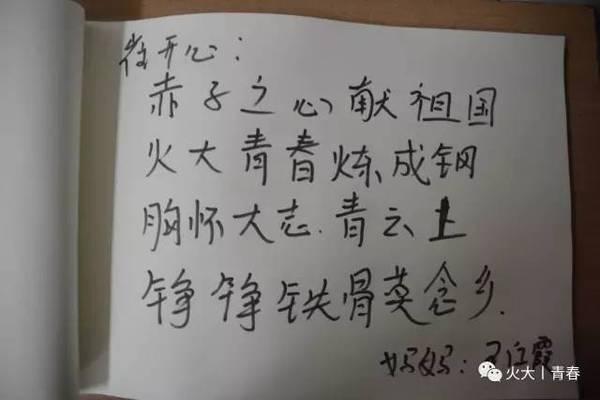 开心：
赤子之心献祖国
火大青春炼成钢
胸怀大志.青云上
铮铮铁骨莫念乡.
妈妈：王红霞
火大丨青春